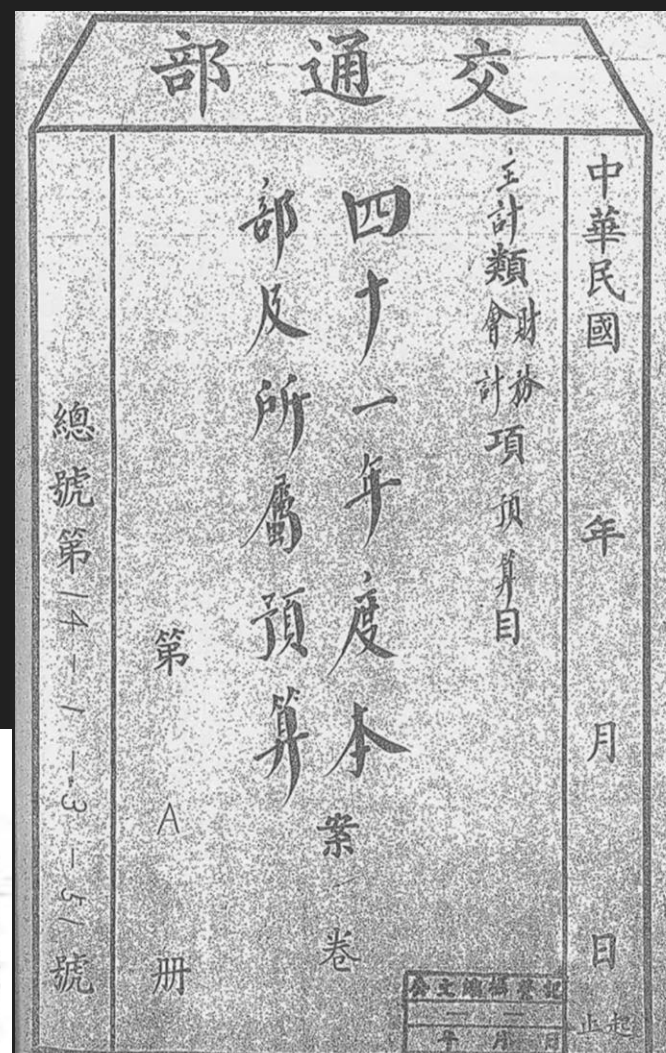 交通部
中華民國　年　月　日起止
主計類財務會計項預算目
四十一年度本
部及所屬預算
案卷
第A册
總號第14-1-3-51號
公文歸檔登記
年月日